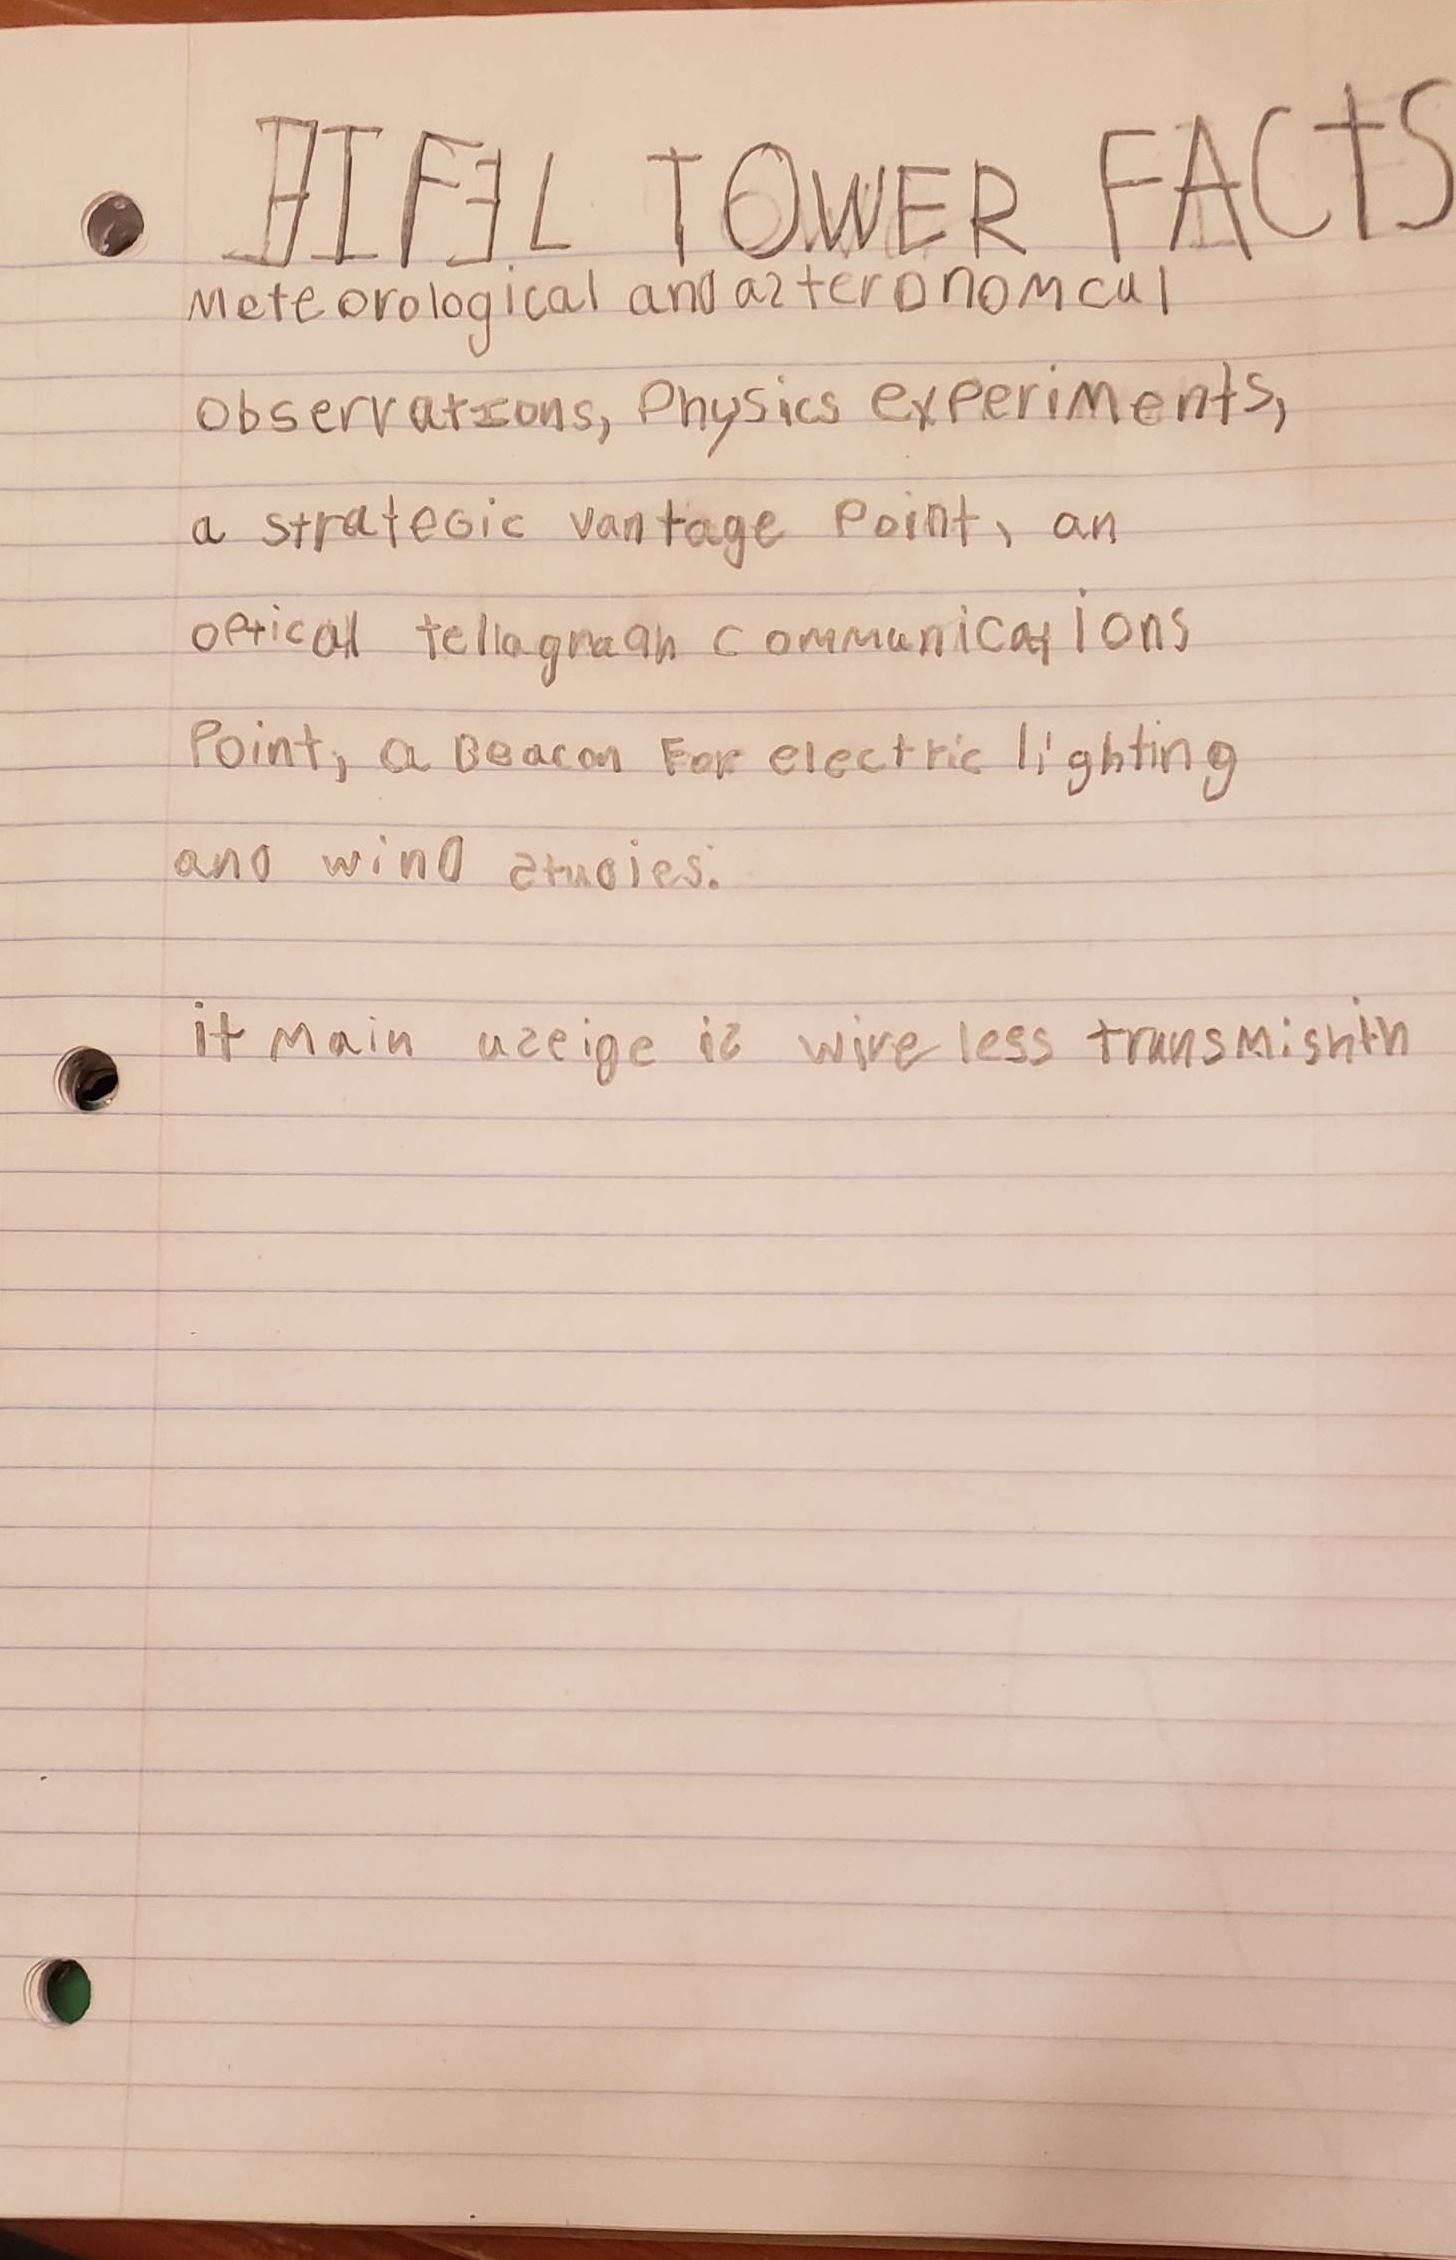 EIFEL TOWER FACTS
Meteorological and azteronomcul
observations, Physics experiments,
a strategic vantage Point, an
optical tellagraph communications
Point, a Beacon For electric lighting
and wind studies.
it Main uzeige is wireless transmishin